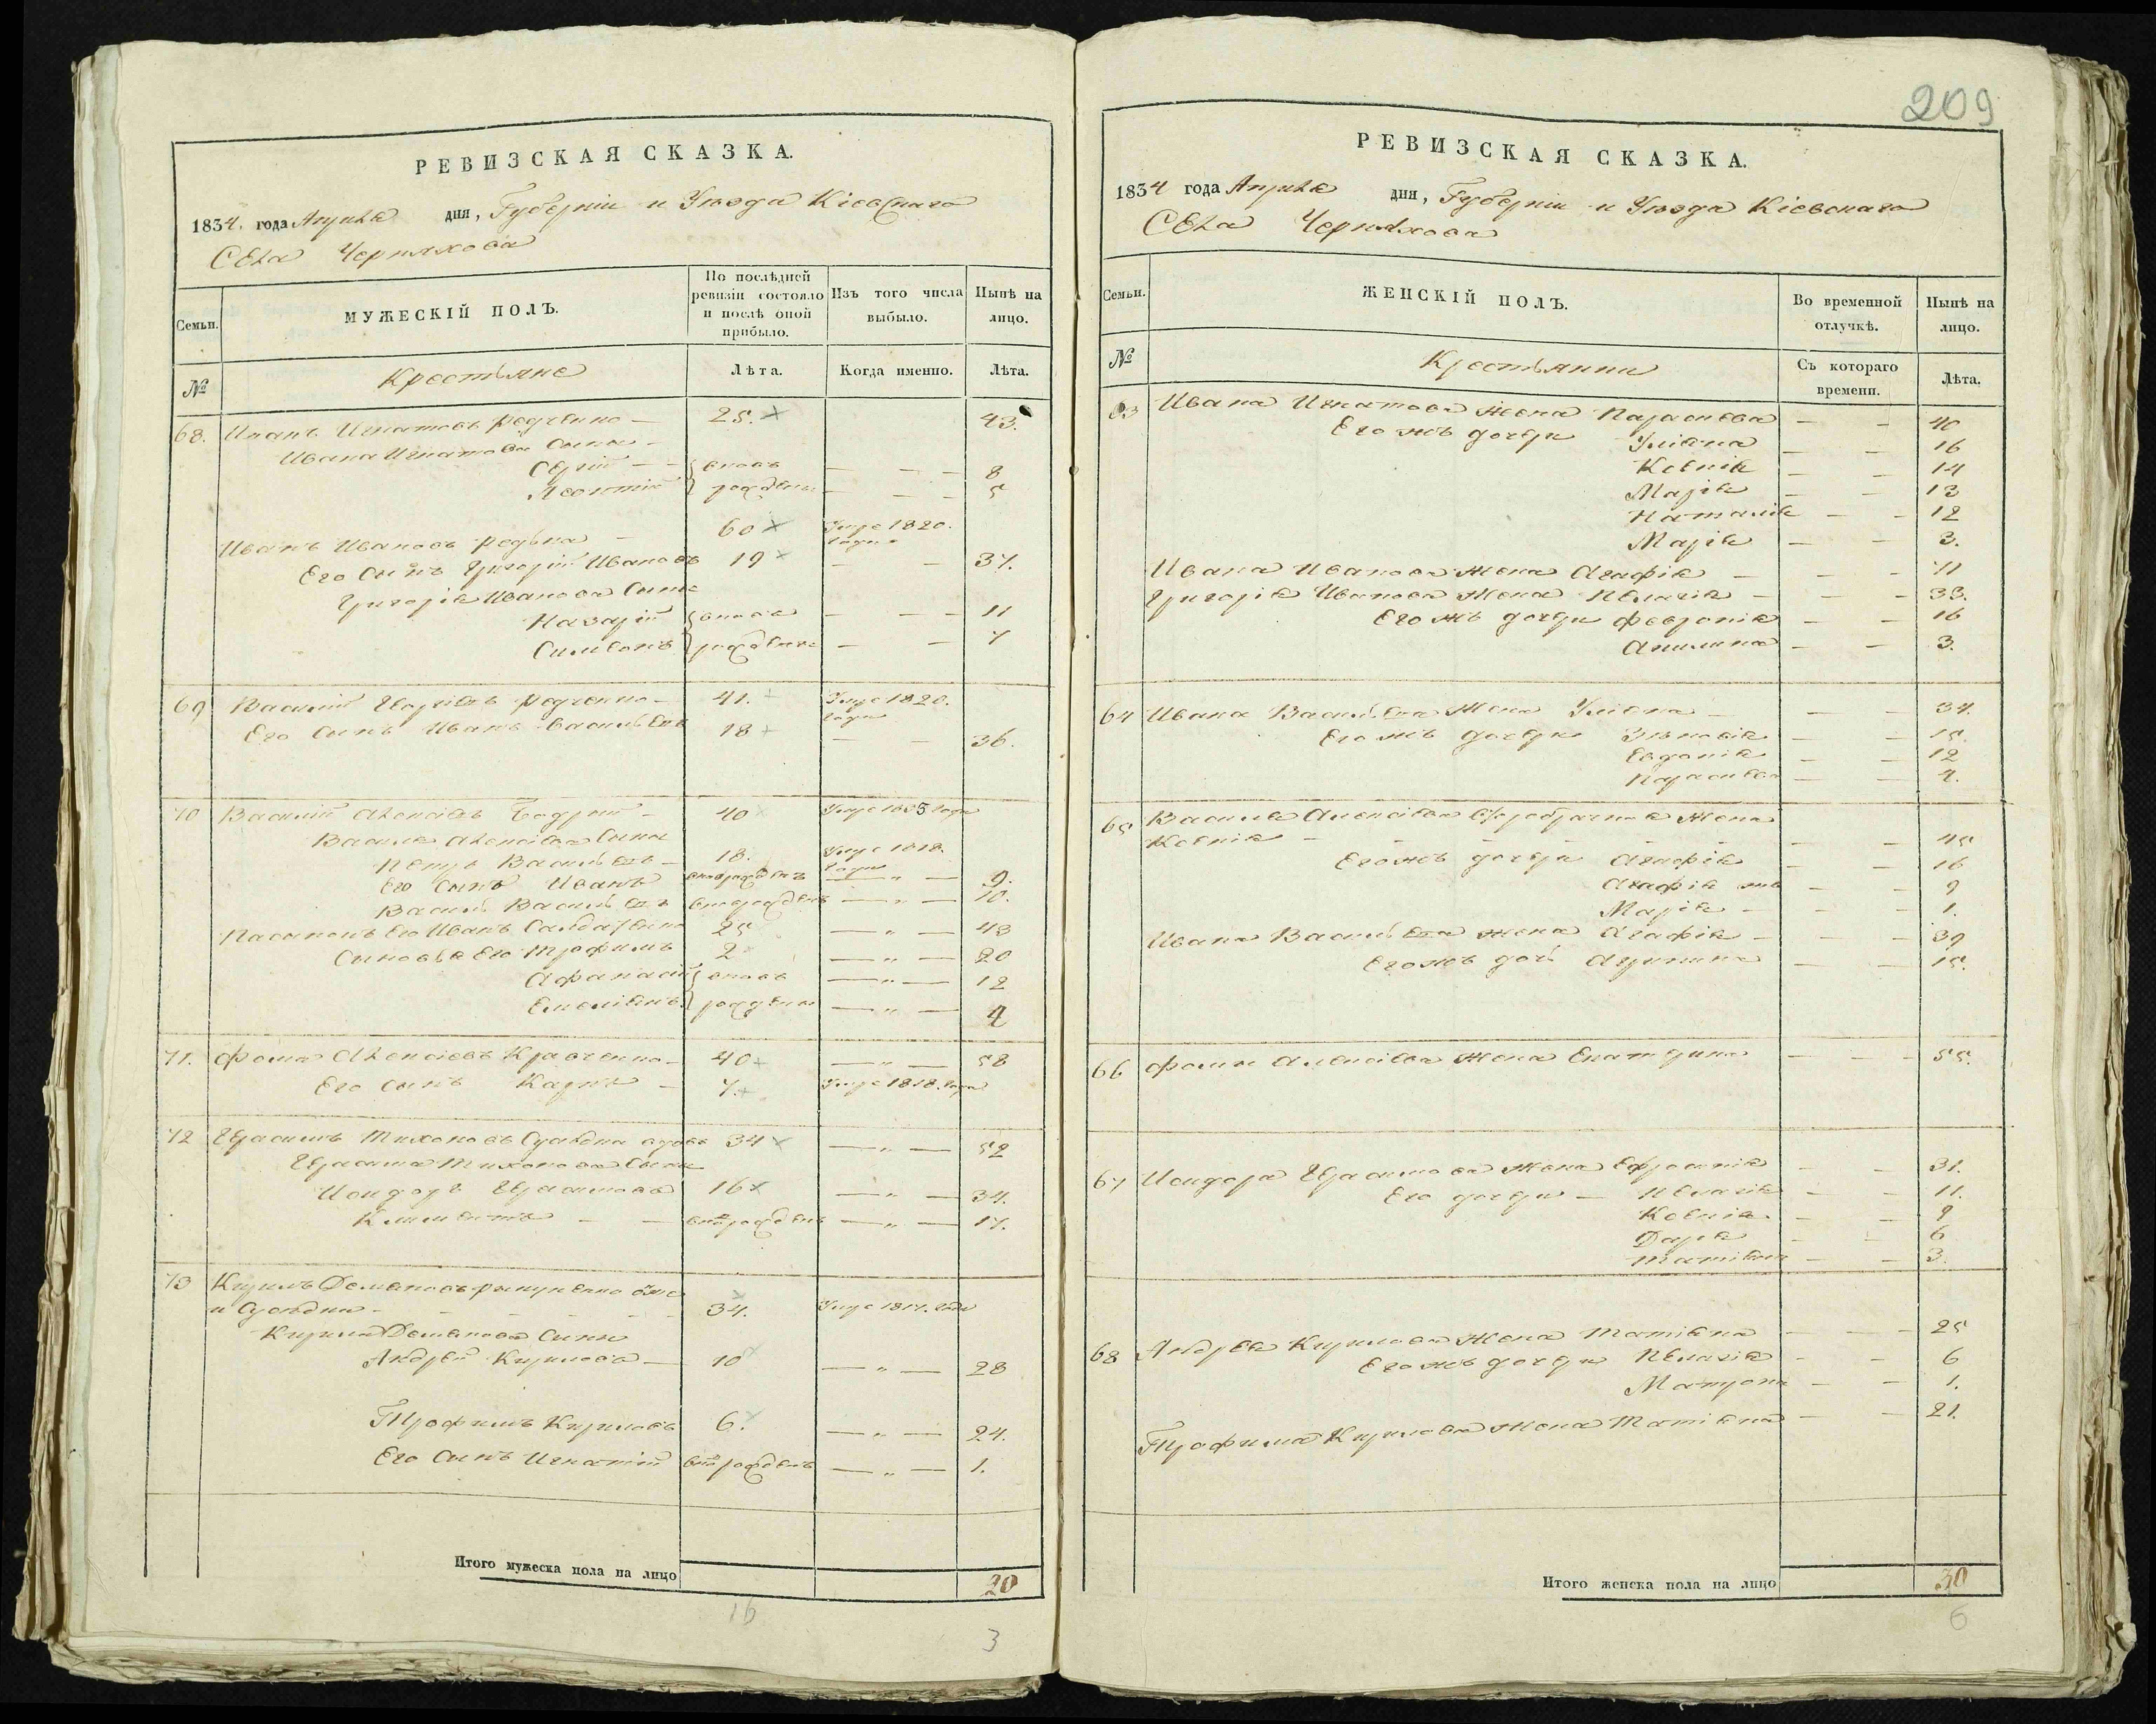 РЕВИЗСКАЯ СКАЗКА.
1834. года Апреля дня, Губерніи и Уезда Кіевскаго
Села Черняхова
Семьи. МУЖЕСКІЙ ПОЛЪ. По послѣдней ревизіи состояло и послѣ оной прибыло. Изъ того числа выбыло. Нынѣ на лицо.
№ Крестьяне Лѣта. Когда именно. Лѣта.
68. Иванъ Игнатовъ 25. 43.
Ивана Игнатова сыны
Сергій вновь 8
Леонтій рожденны 5
Иванъ Ивановъ 60 Умре 1820. года
Его сынъ Григорій Ивановъ 19 37.
Григорія Иванова сыны
Назарій вновь 11
Симеонъ рожденны 7
69 Василій 41. Умре 1820. года
Его сынъ Иванъ Васильевъ 18 36.
70 Василій Алексіевъ 40 Умре 1825 года
Василя Алексіева сыны
Петръ Васильевъ 18. Умре 1818. года
Его сынъ Иванъ вновь рожденъ 9.
Васили Васильевъ вновь рожденъ 10.
Пасынокъ его Иванъ 25 43
Сыновья его Трофимъ 2 20
Афанасій вновь 12
Емеліянъ рожденны 4
71. Фома Алексіевъ Кравченко 40 58
Его сынъ Карпъ 7. Умре 1818. года
72 Герасимъ Тихоновъ 34 52
Герасима Тихонова сыны
Исидоръ Герасимовъ 16 34.
Климентъ вновь рожденъ 17.
73 Кирилъ
34. Умре 1817. года
Кирила сыны
Андрей Кириловъ 10 28
Трофимъ Кириловъ 6. 24.
Его сынъ Игнатій вновь рожденъ 1.
Итого мужеска пола на лицо 20
16
3
209
РЕВИЗСКАЯ СКАЗКА.
1834 года Апреля дня, Губерніи и Уезда Кіевскаго
Села Черняхова
Семьи. ЖЕНСКІЙ ПОЛЪ. Во временной отлучкѣ. Нынѣ на лицо.
№ Крестьянки Съ котораго времени. Лѣта.
63 Ивана Игнатова жена Параскева 40
Его жъ дочери Уліяна 16
Ксенія 14
Марія 13
Наталія 12
Марія 3.
Ивана Иванова жена Агафія 71
Григорія Иванова жена Пелагія 33.
Его жъ дочери Февронія 16
Акилина 3.
64 Ивана Васильева жена Уліяна 34.
Его жъ дочери Зѣновія 15.
Евдокія 12
Параскева 4.
65 Василія Алексіева жена
Ксенія 45
Его жъ дочери Агафія 16
Агафія 9
Марія 1.
Ивана Васильева жена Агафія 39
Его жъ дочь 15.
66 Фомы Алексіева жена Екатерина 55.
67 Исидора Герасимова жена Ефросинія 31.
Его дочери Пелагія 11.
Ксенія 9
Дарія 6
Татіяна 3.
68 Андрея Кирилова жена Татіяна 25
Его жъ дочери Пелагія 6
Матрона 1.
Трофима Кирилова жена Татіяна 21.
Итого женска пола на лицо 30
6